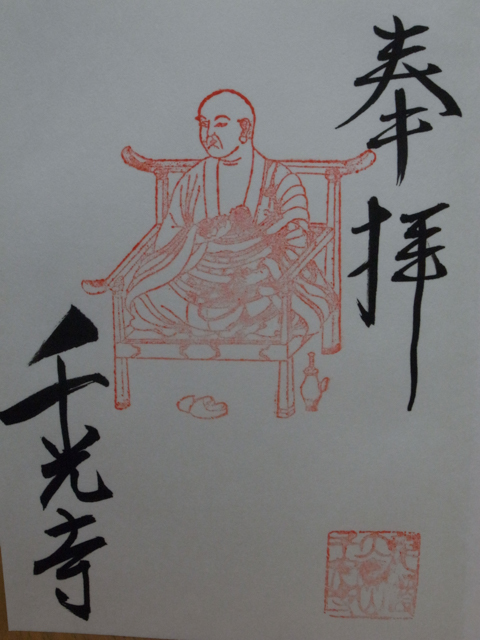 奉拝
千光寺